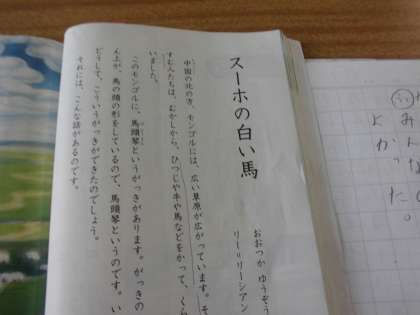 スーホの白い馬
おおつか ゆうぞう
リー＝リーシアン
中国の北の方、モンゴルには、広い草原が広がっています。そ
すむ人たちは、むかしから、ひつじや牛や馬などをかって、くら
いました。
このモンゴルに、馬頭琴というがっきがあります。がっきの
ん上が、馬の頭の形をしているので、馬頭琴というのです。い
どうして、こういうがっきができたのでしょう。
それには、こんな話があるのです。
みんなの
よかった。